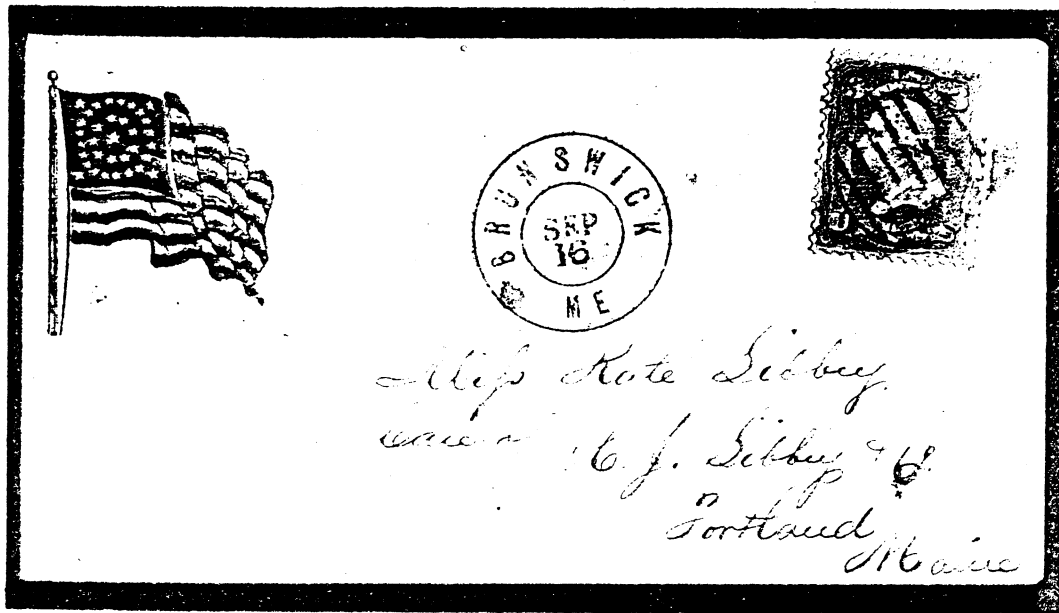 BRUNSWICK
SEP
16
ME
Miss Kate Libby
Care of
J. Libby & Co.
Portland
Maine